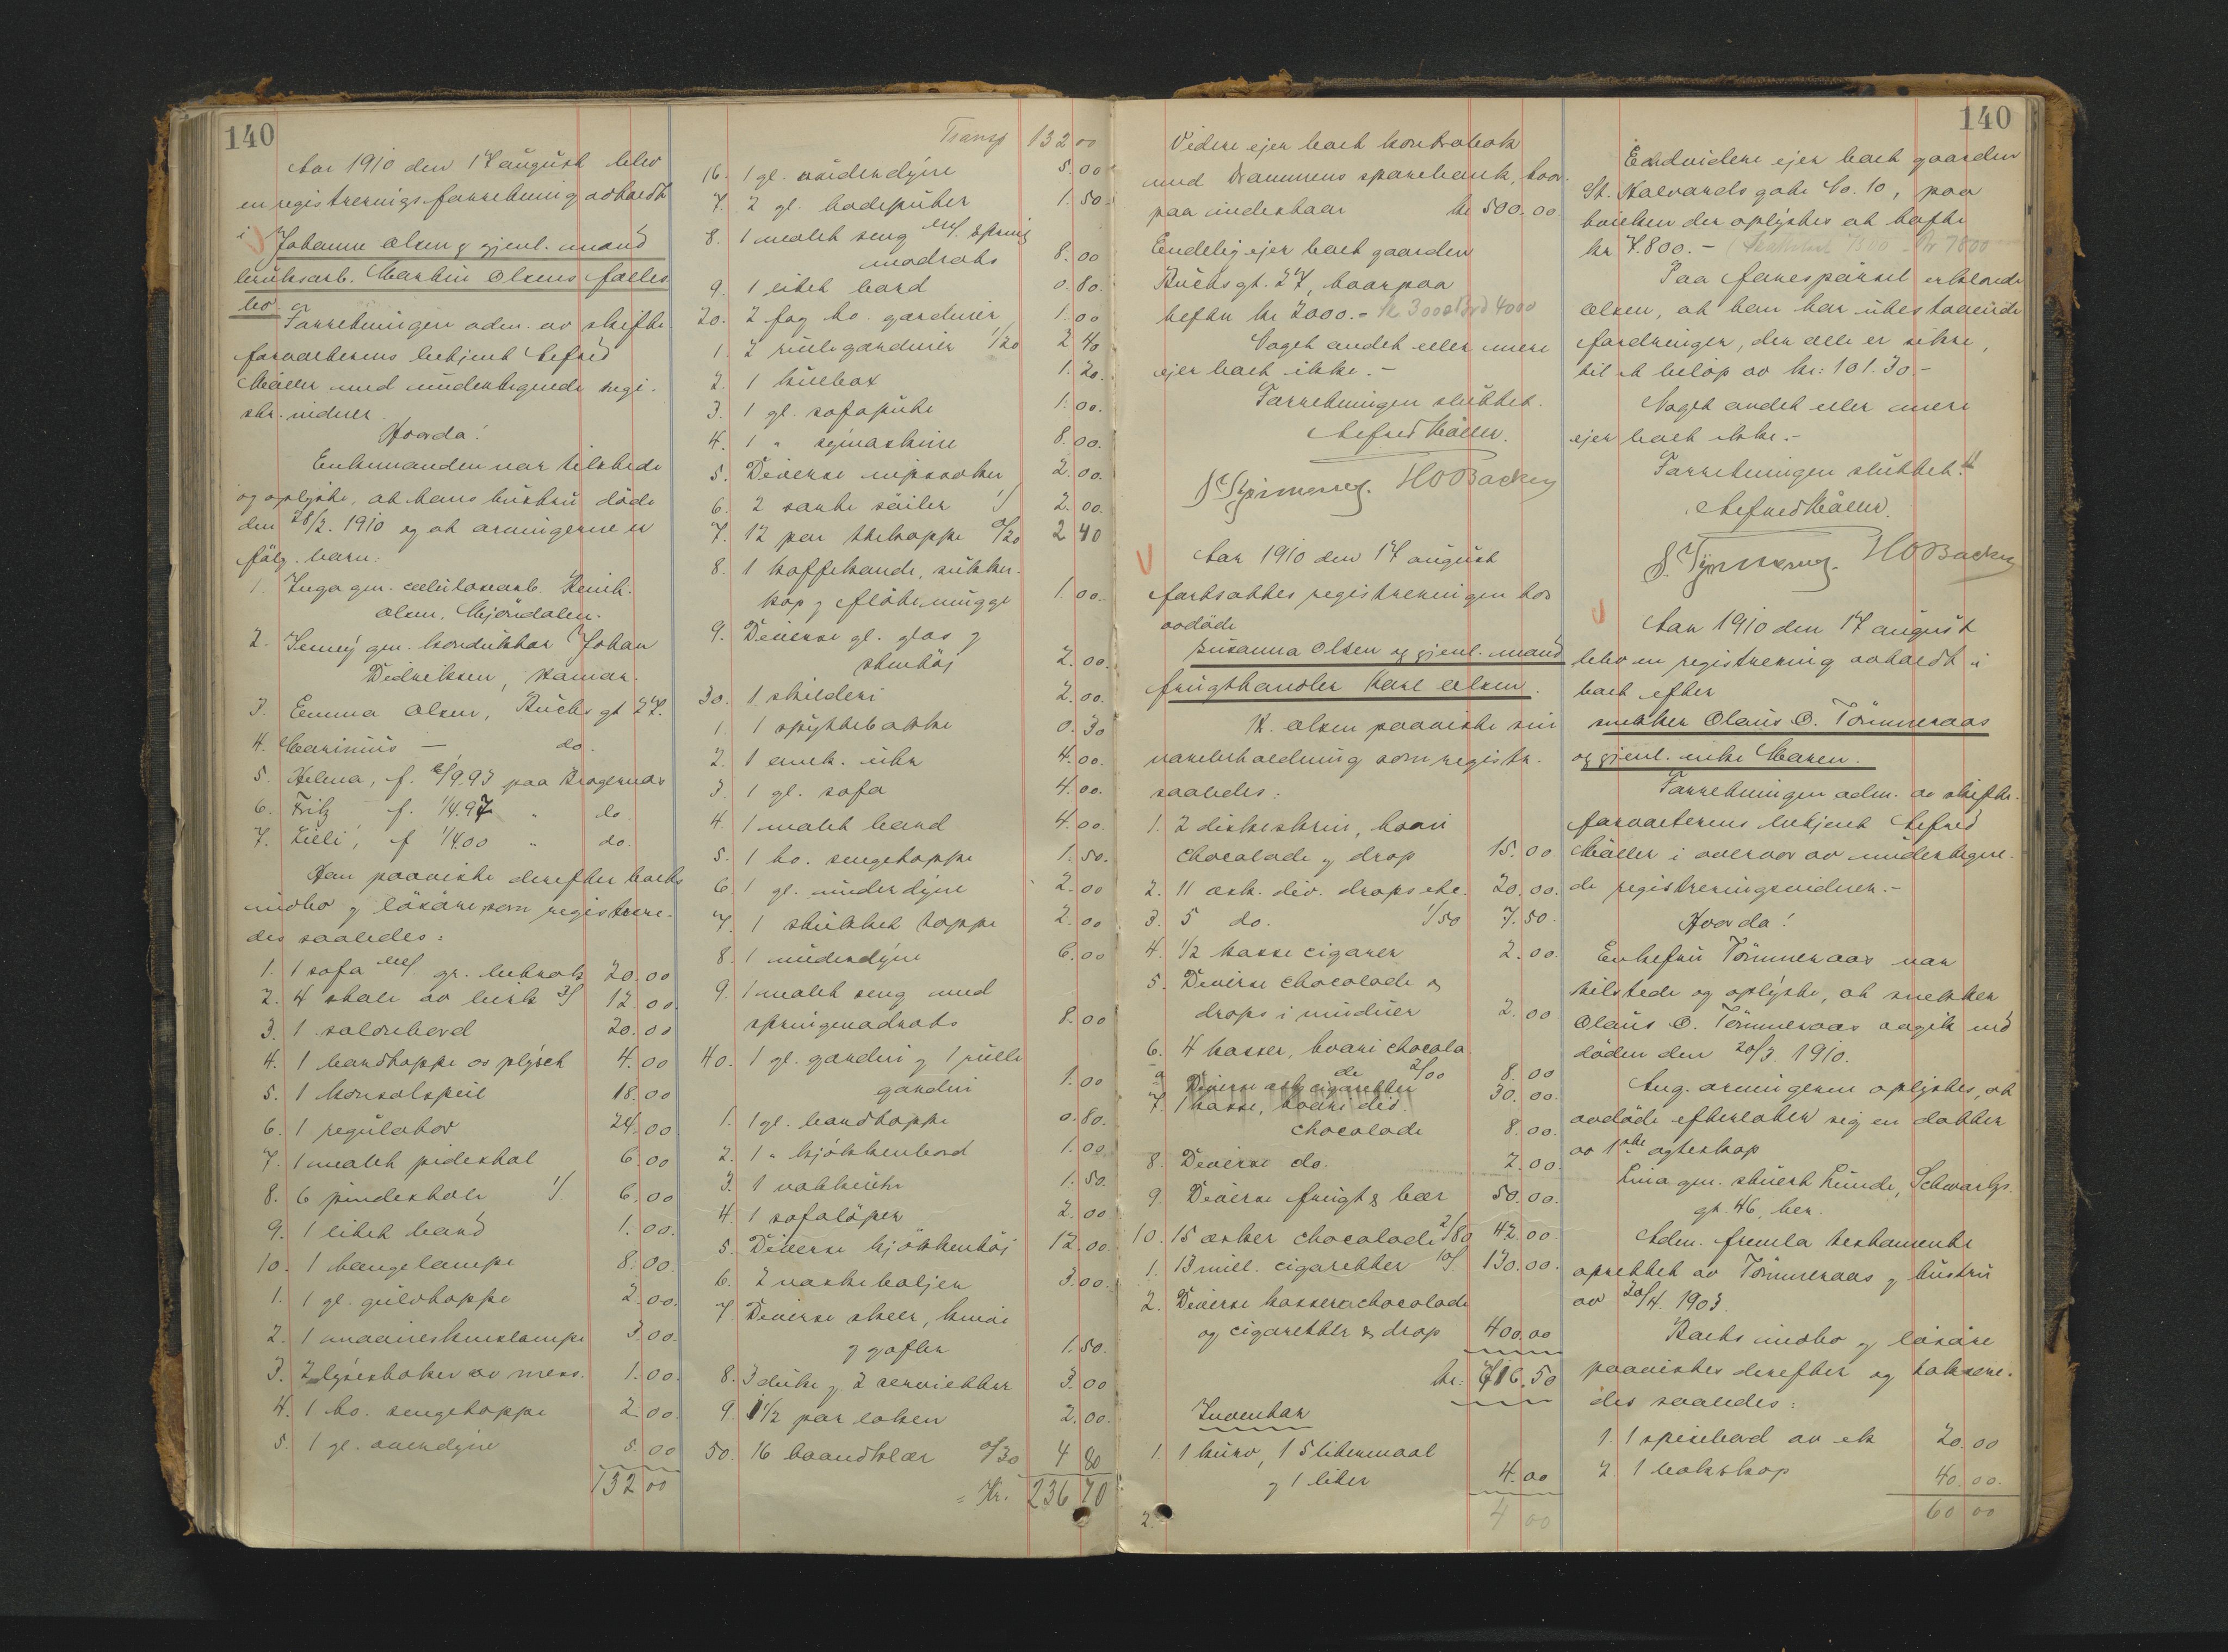 140
Aar 1910 den 17 august blev
en registreringsforretning avholdt
i Johanne Olsen & gjenl. mand
bruksarb. Martin Olsens fælles
bo
Forretningen adm. av skifte
forvalterens betjent Alfred
Møller med undertegnede regi-
str. vidner
Hvorda!
Enkemanden var tilstede
og oplyste, at hans hustru døde
den 28/2. 1910 og at arvingerne er
følg. barn:
1. Inga gm. celulosearb. Henrik
Olsen, Mjøndalen.
2. Jenny gm. konduktør Johan
Dedriksen, Hamar.
3. Emma Olsen, Buchs gt 27.
4. Marinius — do.
5. Helena, f. /9.93 paa Bragernæs
6. Fritz f. 1/4.97 " do
7. Lilli, f 1/4.00 " do.
Han paaviste derefter boets
indbo & løsøre som registrere-
des saaledes:
1. 1 sofa m/ gr. betræk 20.00
2. 4 stole av birk 3/ 12.00.
3. 1 salonbord 20.00
4. 1 bordteppe av plysch 4.00
5. 1 konsolspeil 18.00
6. 1 regulator 24.00
7. 1 malet pidestal 6.00
8. 6 pindestole 1/. 6.00
9. 1 litet bord 1.00.
10. 1 hængelampe 8.00.
1. 1 gl. gulvteppe 2.00.
2. 1 maaneskinslampe 3.00.
3. 2 lysestaker av mess. 1.00.
4. 1 ho. sengeteppe 2.00.
5. 1 gl. overdyne 5.00
132 00
Transp 132 00
16. 1 gl. underdyne 5.00
7. 2 gl. hodeputer 1.50.
8. 1 malet seng m/. spring
madrats 8.00
9. 1 litet bord 0.80.
20. 2 fag ho. gardiner 1.00
1. 2 rullegardiner 1/20 2 40
2. 1 kulbox 1.20.
3. 1 gl. sofapute 1.00.
4. 1 " symaskine 8.00.
5. Diverse nipssaker 2.00.
6. 2 sorte søiler 1/ 2.00.
7. 12 par thekopper 0/20 2 40
8. 1 kaffekande, sukker-
kop & fløtemugge 1.00.
9. Diverse gl. glas &
stentøj 2.00.
30. 1 skilderi 2.00.
1. 1 spyttebakke 0.30
2. 1 amk. uhr 4.00.
3. 1 gl. sofa 4.00.
4. 1 malet bord 4.00.
5. 1 ho. sengeteppe 1.50.
6. 1 gl. underdyne 2.00
7. 1 stukket teppe 2.00
8. 1 underdyne 6.00
9. 1 malet seng med
springmadrats 8.00
40. 1 gl. gardin & 1 rulle
gardin 1.00
1. 1 gl. bordteppe 0.80.
2. 1 " kjøkkenbord 1.00
3. 1 vækkeuhr 1.50.
4. 1 sofaløper 2.00
5. Diverse kjøkkentøj 12.00.
6. 2 vaskebaljer 3.00.
7. Diverse skeer, knive
& gafler 1.50.
8. 3 duke & 2 servietter 3.00
9. 1 1/2 par laken 2.00.
50. 16 haandklær 0/30 4 80
= Kr. 236 70
140
Videre ejer boet kontrabok
med Drammens sparebank, hvor-
paa indestaar kr 500.00
Endelig ejer boet gaarden
Buchs gt. 27, hvorpaa
hefter kr 2000.-
Noget andet eller mere
ejer boet ikke. -
Forretningen sluttet.
Alfred Møller.
HOBacken
Aar 1910 den 17 august
fortsattes registreringen hos
avdøde
Susanna Olsen og gjenl. mand
frugthandler Karl Olsen.
K. Olsen paaviste sin
varebeholdning som registr.
saaledes:
1. 2 diskeskrin, hvori
chocolade & drop 15.00.
2. 11 æsk. div. drops etc. 20.00.
3. 5 do. 1/50 7.50.
4. 1/2 kasse cigarer 2.00.
5. Diverse chocolade &
drops i vinduer 2.00
6. 4 kasser, hvori chocola
de 2/00 8.00
" Diverse æsk cigaretter 30.00.
7. 1 kasse, hvori div.
chocolade 8.00.
8. Diverse do. 2.00.
9. Diverse frugt & bær 50.00.
10. 15 æsker chocolade 2/80 42.00
1. 13 mill. cigaretter 10/. 130.00.
2. Diverse kasser chocolade
og cigaretter & drop 400.00
kr: 716.50
Inventar
1. 1 kurv, 1 5 litermaal
& 1 liter 4.00
4 00
2.
Endvidere ejer boet gaarden
St. Halvards gate No. 10, paa
hvilken der oplystes at hefte
kr 7.800. -
Paa forespørsel erklærede
Olsen, at han har utestaaende
fordringer, der alle er sikre,
til et beløp av kr: 101.30.-
Noget andet eller mere
ejer boet ikke. -
Forretningen sluttet.
Alfred Møller.
HOBacken
Aar 1910 den 17 august
blev en registrering avholdt i
boet efter
snekker Olaus O. Tømmeraas
og gjenl. enke Maren.
Forretningen adm. av skifte-
forvalterens betjent Alfred
Møller i overvær av undertegne-
de registreringsvidner. -
Hvorda!
Enkefru Tømmeraas var
tilstede og oplyste, at snekker
Olaus O. Tømmeraas avgik ved
døden den 20/3. 1910.
Ang. arvingerne oplystes, at
avdøde efterlater sig en datter
av 1ste egteskap
Lina gm. stuert Lunde, Schwartz
gt. 46, her.
Adm. fremla testamente
oprettet av Tømmeraas & hustru
av 20/4 1903.
Boets indbo & løsøre
paavistes derefter og taksere-
des saaledes:
1. 1 spisebord av ek 20.00
2. 1 bokskap 40.00.
60 00